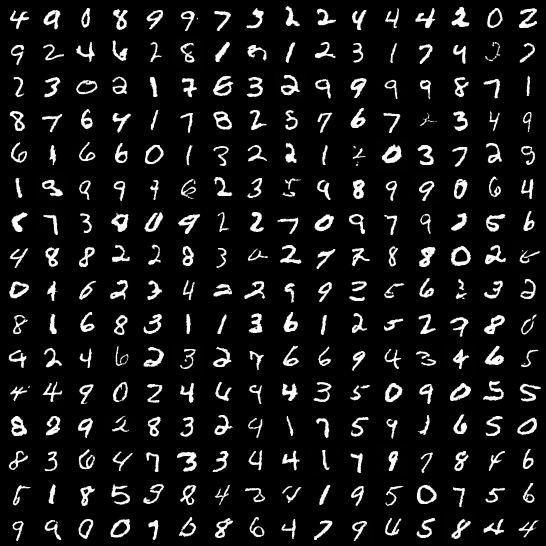 4 9 0 8 9 9 7 3 2 2 4 4 4 2 0 2
9 2 4 6 2 8 1 8 1 2 3 1 7 4 2 7
2 3 0 2 1 7 6 3 2 9 9 9 9 8 7 1
8 7 6 4 1 7 8 2 8 7 6 7 2 3 4 9
6 1 6 6 0 1 3 2 2 1 2 0 3 7 2 9
1 9 9 9 7 6 2 3 5 9 8 9 9 0 6 4
8 7 3 0 0 9 2 2 7 0 9 7 9 2 5 6
4 8 8 2 2 8 3 2 7 7 8 8 0 2
0 1 6 2 3 4 2 2 9 9 2 5 6 3 3 2
8 1 6 8 3 1 1 3 6 1 2 5 2 7 8 0
9 2 4 6 2 3 2 7 6 6 9 4 3 4 6 5
4 4 9 0 2 4 4 9 4 3 5 0 9 0 5 5
8 2 9 2 8 3 2 9 1 7 5 9 1 6 5 0
8 3 6 4 7 3 3 4 4 1 7 9 7 8 4 6
5 1 8 5 3 8 4 2 4 1 9 5 0 7 5 6
9 9 0 0 7 6 8 6 4 7 9 6 5 8 4 4